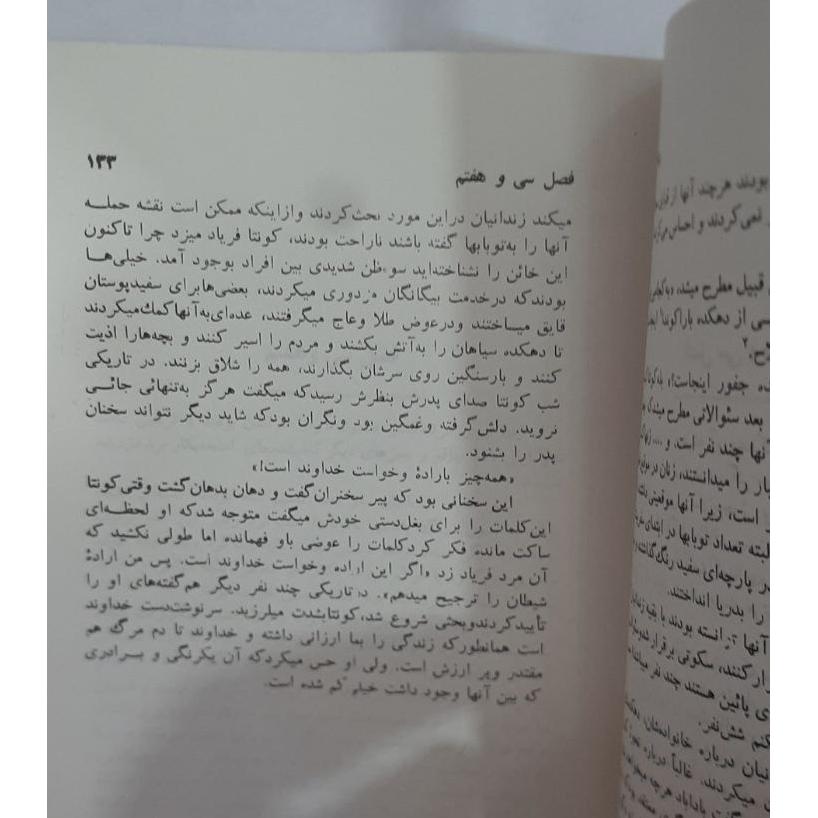 ۱۳۳
فصل سی و هفتم
میکند زندانیان دراین مورد بحث‌کردند وازاینکه ممکن است نقشه حمله
آنها را به‌توبابها گفته باشند ناراحت بودند، کونتا فریاد میزد چرا تاکنون
این خائن را نشناخته‌اید سوءظن شدیدی بین افراد بوجود آمد. خیلی‌ها
بودندکه درخدمت بیگانگان مزدوری میکردند، بعضی‌هابرای سفیدپوستان
قایق میساختند ودرعوض طلا وعاج میگرفتند، عده‌ای‌به‌آنهاکمك‌میکردند
تا دهکده سیاهان را به‌آتش بکشند و مردم را اسیر کنند و بچه‌هارا اذیت
کنند و بارسنگین روی سرشان بگذارند، همه را شلاق بزنند. در تاریکی
شب کونتا صدای پدرش بنظرش رسیدکه میگفت هرگز به‌تنهائی جائی
نروید. دلش‌گرفته وغمگین بود ونگران بودکه شاید دیگر نتواند سخنان
پدر را بشنود.
«همه‌چیز بارادهٔ وخواست خداوند است!»
این سخنانی بود که پیر سخنران‌گفت و دهان بدهان‌گشت وقتی‌کونتا
این‌کلمات را برای بغل‌دستی خودش میگفت متوجه شدکه او لحظه‌ای
ساکت مانده فکر کردکلمات را عوضی باو فهمانده اما طولی نکشید که
آن مرد فریاد زد «اگر این اراده وخواست خداوند است. پس من ارادهٔ
شیطان را ترجیح میدهم». درتاریکی چند نفر دیگر هم‌گفته‌های او را
تأییدکردندوبحثی شروع شد،کونتابشدت میلرزید. سرنوشت‌دست خداوند
است همانطورکه زندگی را بما ارزانی داشته و خداوند تا دم مرگ هم
مقتدر وپر ارزش است. ولی او حس میکردکه آن یکرنگی و بسرادری
که بین آنها وجود داشت خیلی کم شده است.
بودند هرچند آنها از
نمی‌کردند و احساس
قبیل مطرح میشد،
سی از دهکده باراکوندا
جفور اینجاست!»
بعد سئوالاتی مطرح میشدکه
آنها چند نفر است. و
بار را میدانستند، زنان در
است، زیرا آنها موقعیتی
البته تعداد توبابها در ابتدای
پارچه‌ای سفید رنگ‌گذاشته
را بدریا انداختند.
آنها توانسته بودند با بقیه
کنند، سکوتی برقرار شد
پائین هستند چند نفر
کنم شش‌نفر.
درباره خانواده‌شان،
میکردند. غالباً درباره